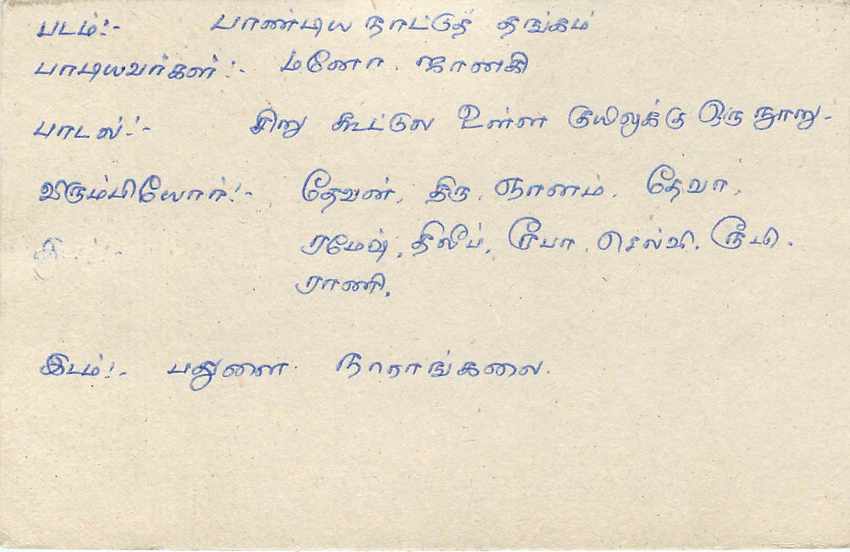 படம்:- பாண்டிய நாட்டுத் தங்கம்
பாடியவர்கள்:- மனோ. ஜானகி
பாடல்:- சிறு கூட்டுல உள்ள குயிலுக்கு ஒரு நூறு-
விரும்பியோர்:- தேவன், திரு, ஞானம், தேவா,
ரமேஷ், திலீப், ரீபா, செல்வி,
ராணி.
இடம்:- பதுளை நாராங்கலை.